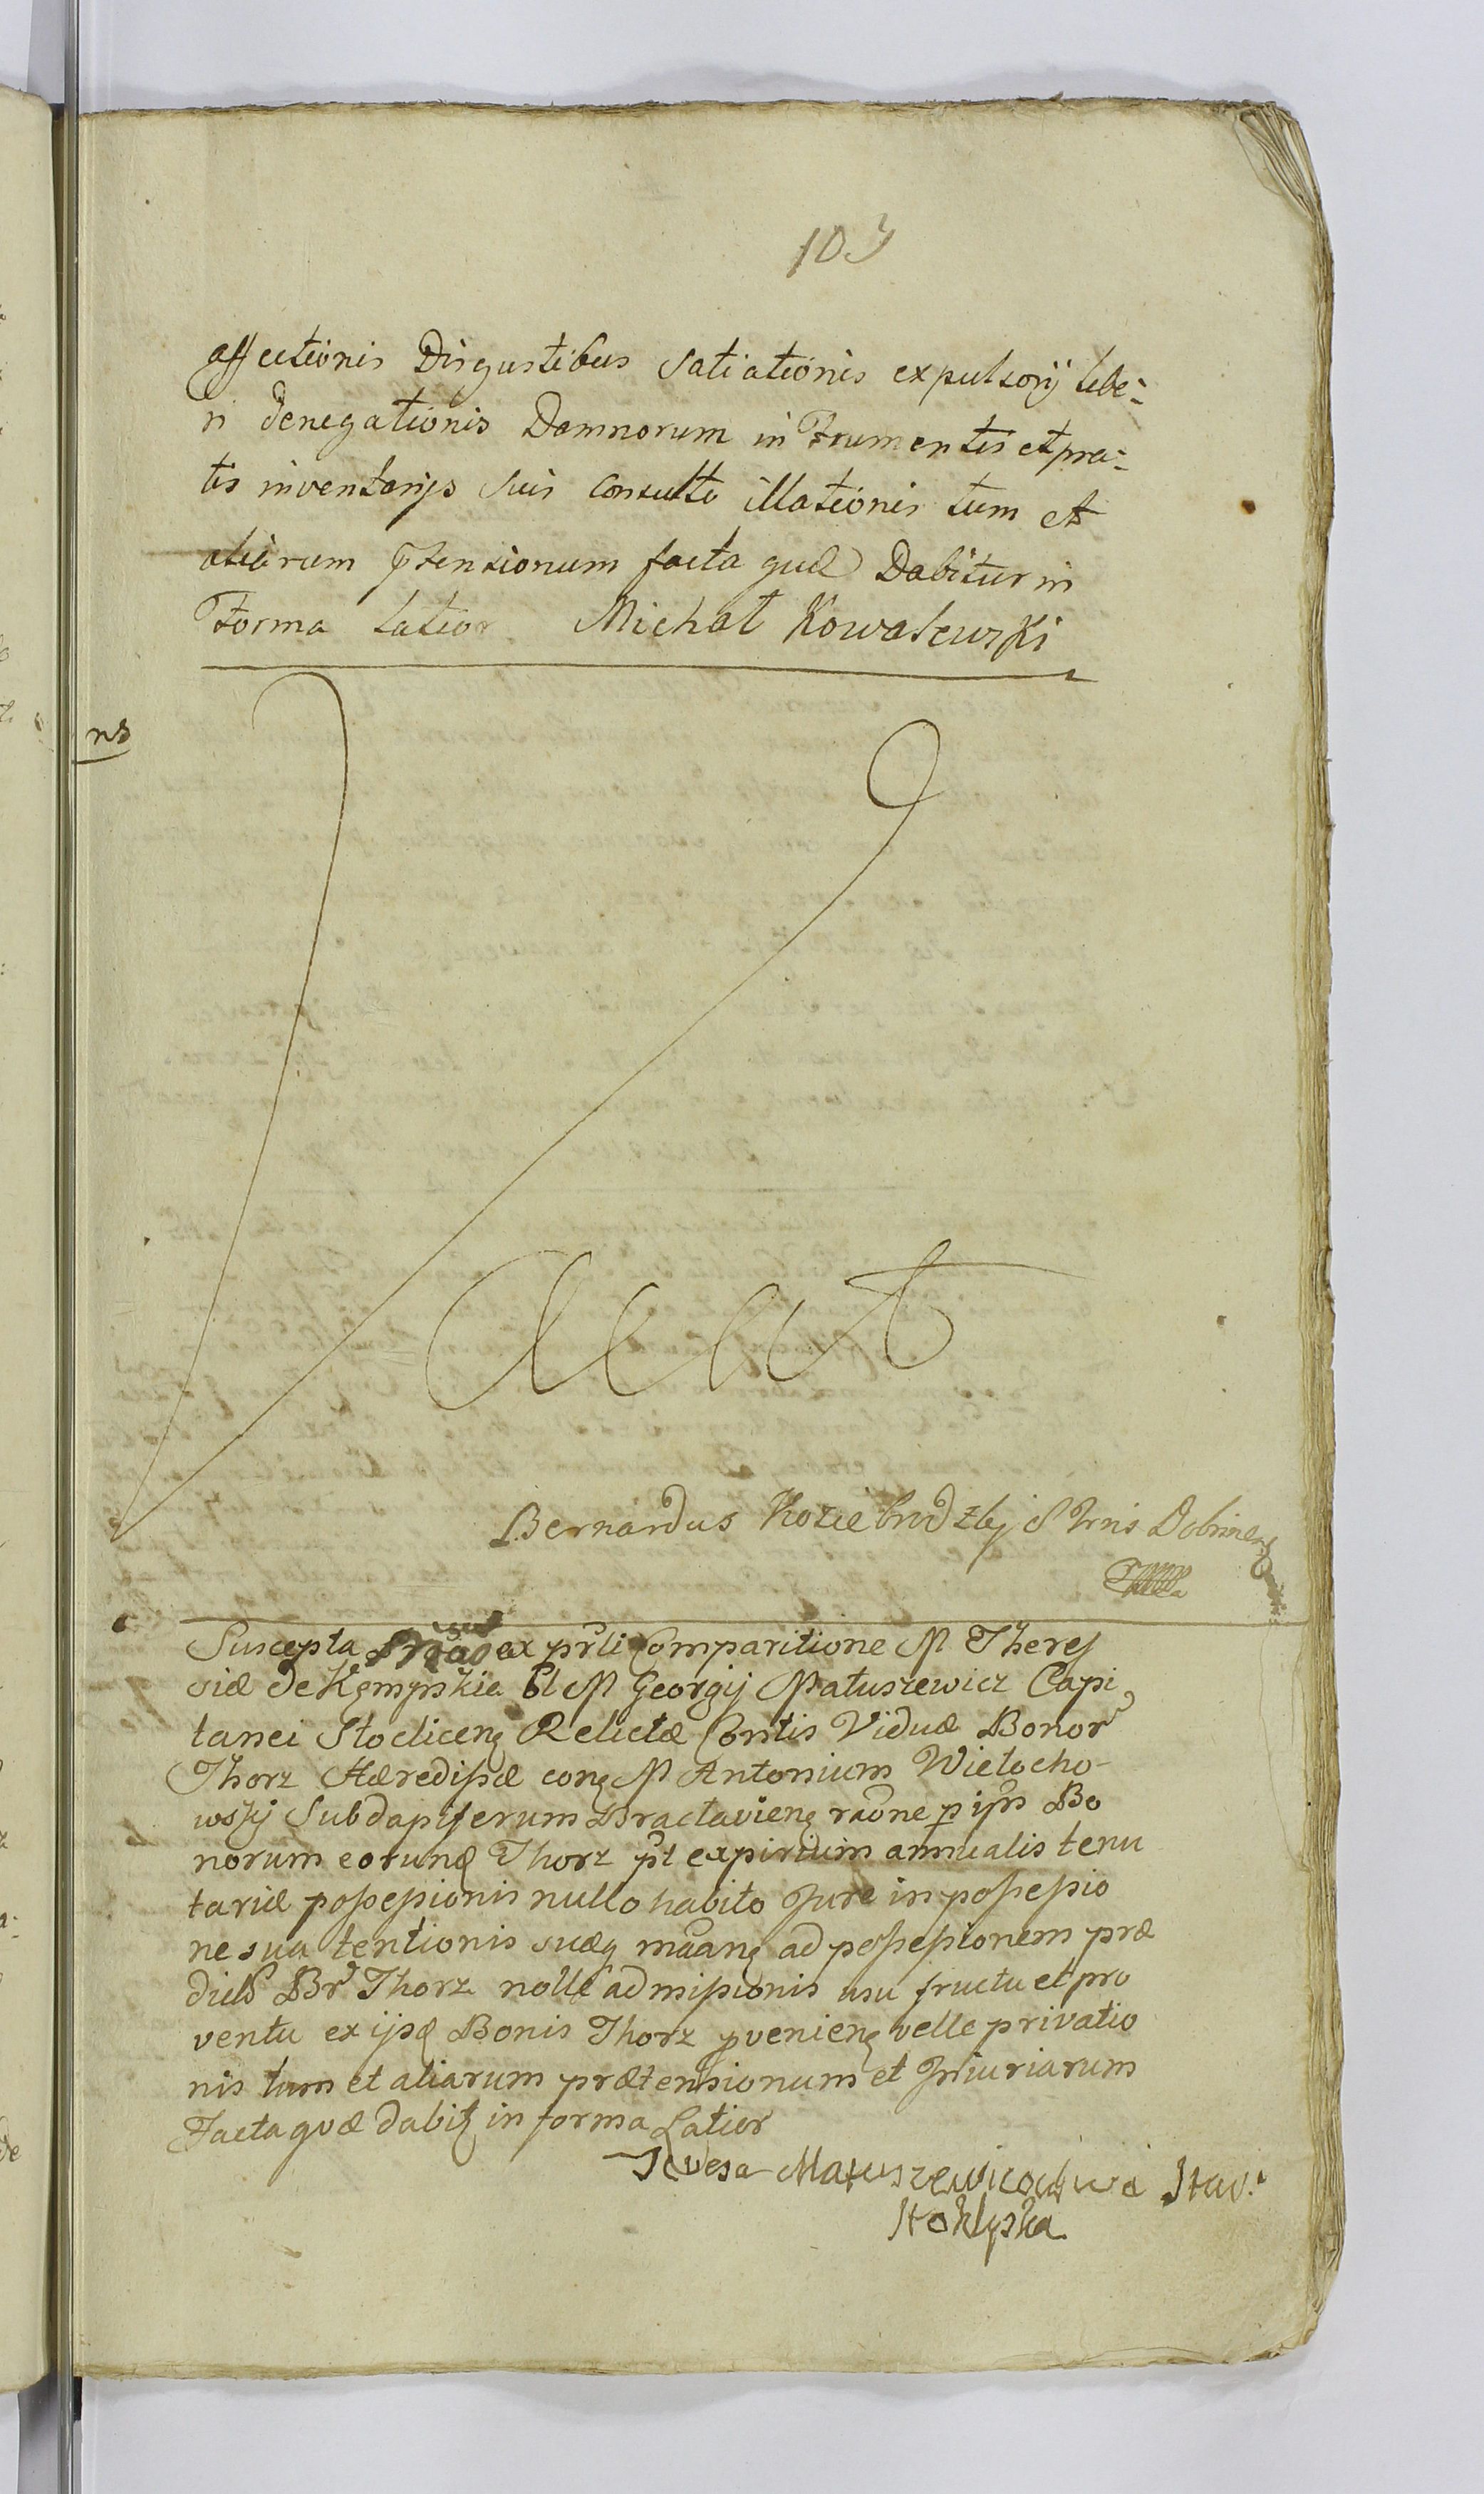 103
affectionis Disgustibus satiationis expulsorij libe-
ri denegationis Damnorum in Frumentis et pra-
tis inventarijs suis consulto illationis tum et
aliarum p̄tensionum facta quæ Dabitur in
Forma latior Michał Kowalewski
ns
Vacat
Bernardus Koziebrodzky
Suscepta ex prli Comparitione M There
siæ de Kępmskie M Georgij Matuszewicz Capi
tanei Stoclicenȝ Relictæ Contis Viduæ Bonor
Thorz Hæredissæ conȝ M Antonium Wielocho-
wskij Subdapiferum Bractavienȝ raone p ipm Bo
norum eorunȝ Thorz pt expirium annualis tenu
tariæ possessionis nullo habito Jure in possessio
ne sua tentionis suæȝ ad possessionem præ
dict Br Thorz nolle admissionis usu fructu et pro
ventu ex ijsȝ Bonis Thorz p̱venienȝ velle privatio
nis tum et aliarum prætensionum et Iniuriarum
Facta quæ dabiȝ in forma Latior
Teresa Matuszewicowa
Stoklyska